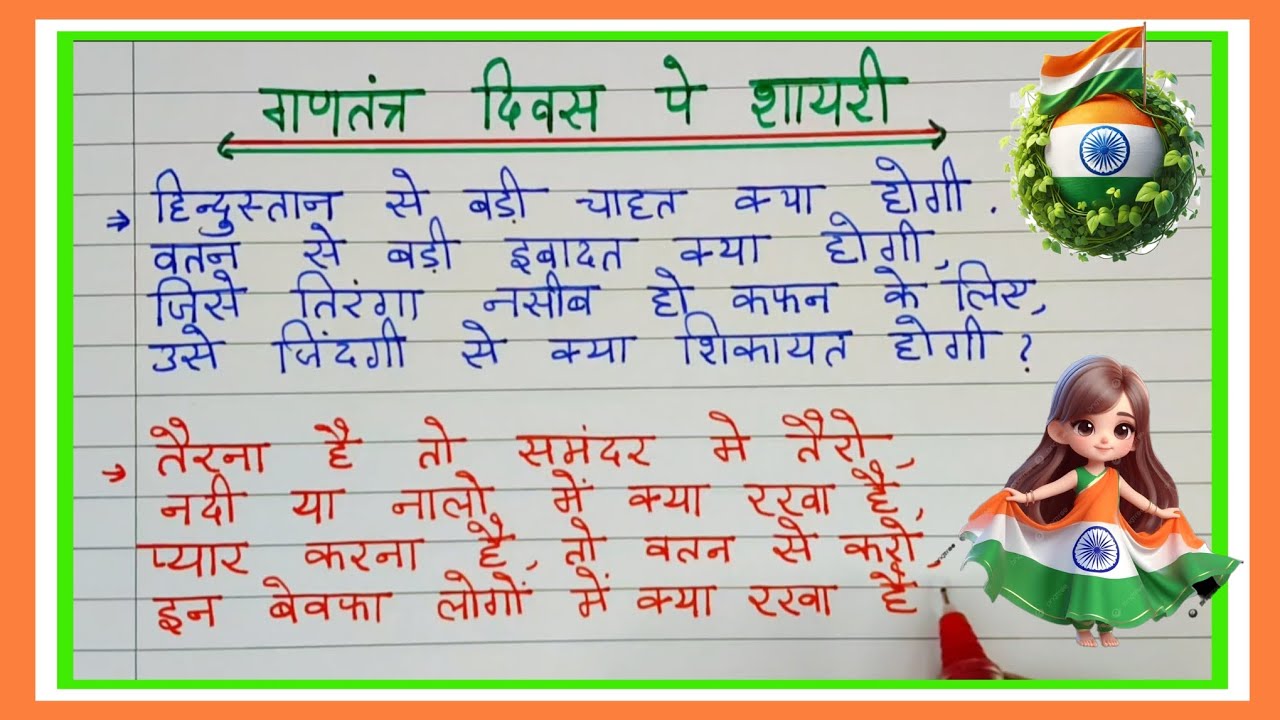 गणतंत्र दिवस पे शायरी
⇒ हिन्दुस्तान से बड़ी चाहत क्या होगी.
वतन से बड़ी इबादत क्या होगी,
जिसे तिरंगा नसीब हो कफन के लिए,
उसे जिंदगी से क्या शिकायत होगी ?
→ तैरना है तो समंदर मे तैरो,
नदी या नालो में क्या रखा है,
प्यार करना है, तो वतन से करो,
इन बेवफा लोगों में क्या रखा है